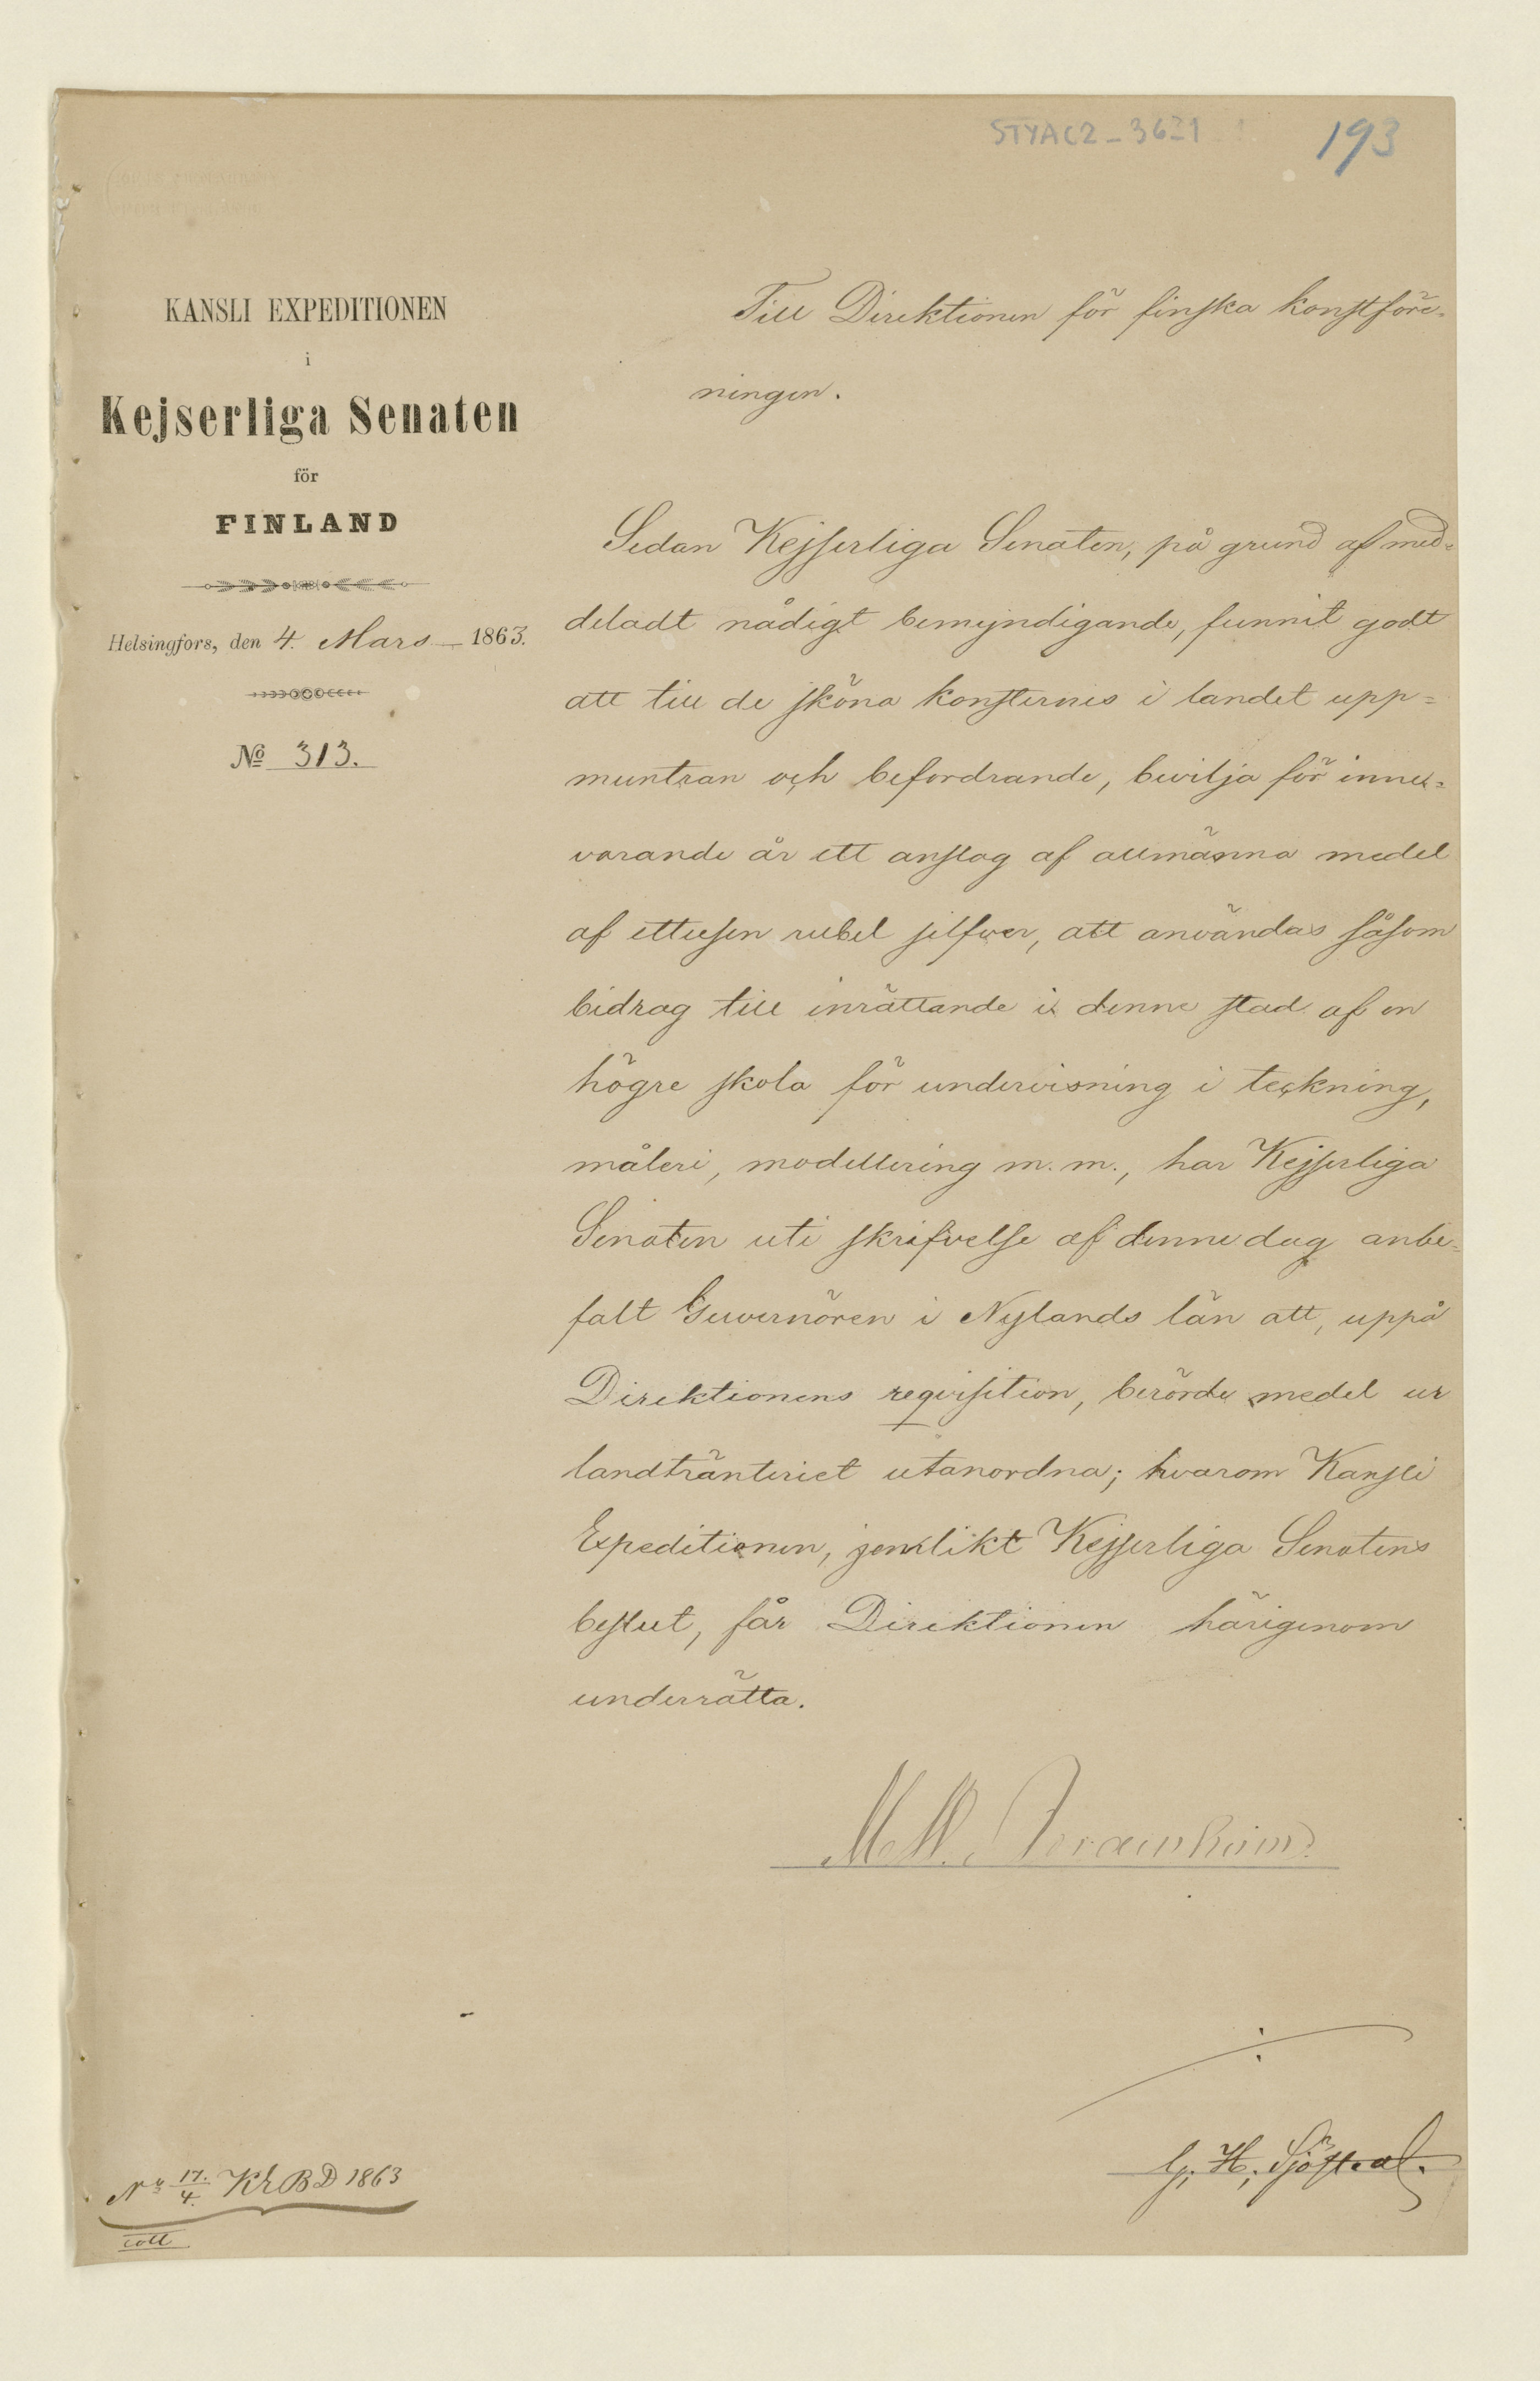 STYAC2_3621
193
KANSLI EXPEDITIONEN
i
Kejserliga Senaten
för
FINLAND
Helsingfors, den 4. Mars 1863.
No 313.
Till Direktionen för finska konstföre=
ningen.
Sedan Kejserliga Senaten, på grund af med=
deladt nådigt bemyndigande, funnit godt
att till de sköna konsternes i landet upp=
muntran och befordrande, bevilja för inne=
varande år ett anslag af allmänna medel
af ettusen rubel silfwer, att användas såsom
bidrag till inrättande i denne stad af en
högre skola för undervisning i teckning,
måleri, modellering m. m., har Kejserliga
Senaten uti skrifvelse af denne dag anbe=
falt Guvernören i Nylands län att, uppå
Direktionens reqvisition, berörde medel ur
landtränteriet utanordna; hvarom Kansli
Expeditionen, jemlikt Kejserliga Senatens
beslut, får Direktionen härigenom
underrätta.
G. H. Sjöstedt.
No 17./4. KEBD 1863
coll